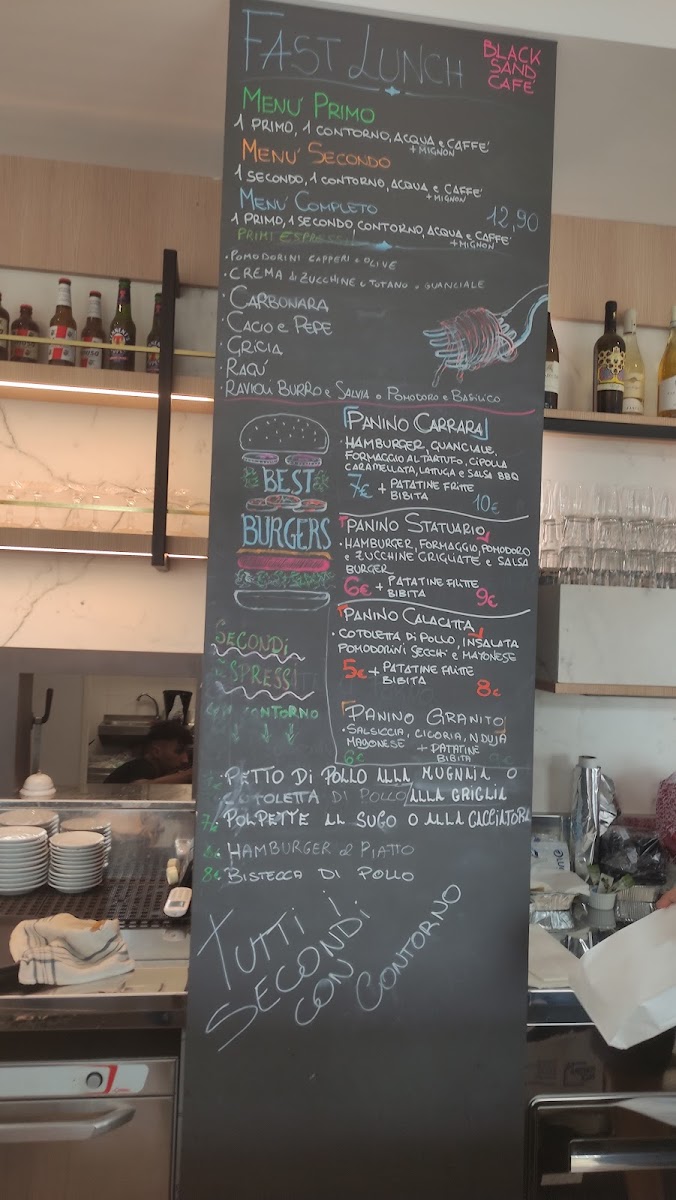 FAST LUNCH
BLACK
SAND
CAFE'
MENU' PRIMO
1 PRIMO, 1 CONTORNO, ACQUA e CAFFE'
+ MIGNON
MENU' SECONDO
1 SECONDO, 1 CONTORNO, ACQUA e CAFFE'
+ MIGNON
MENU' COMPLETO 12,90
1 PRIMO, 1 SECONDO, CONTORNO, ACQUA e CAFFE'
+ MIGNON
PRIMI ESPRESSI
• POMODORINI CAPPERI e OLIVE
• CREMA di ZUCCHINE e TOTANO o GUANCIALE
• CARBONARA
• CACIO e PEPE
• GRICIA
• RAGU'
• RAVIOLI BURRO e SALVIA o POMODORO e BASILICO
BEST
BURGERS
PANINO CARRARA
• HAMBURGER, GUANCIALE,
FORMAGGIO AL TARTUFO, CIPOLLA
CARAMELLATA, LATUGA e SALSA BBQ
7€ + PATATINE FRITTE
BIBITA 10€
PANINO STATUARIO
• HAMBURGER, FORMAGGIO, POMODORO
e ZUCCHINE GRIGLIATE e SALSA
BURGER
6€ + PATATINE FRITTE
BIBITA 9€
PANINO CALACATTA
• COTOLETTA di POLLO, INSALATA
POMODORINI SECCHI e MAYONESE
5€ + PATATINE FRITTE
BIBITA 8€
PANINO GRANITO
• SALSICCIA, CICORIA, NDUJA
MAYONESE + PATATINE
BIBITA
6€
SECONDI
ESPRESSI
CONTORNO
• PETTO DI POLLO ALLA MUGNAIA O
COTOLETTA DI POLLO/ALLA GRIGLIA
7€ • POLPETTE AL SUGO O ALLA CACCIATORA
8€ • HAMBURGER al PIATTO
8€ • BISTECCA DI POLLO
TUTTI i
SECONDI
CON
CONTORNO